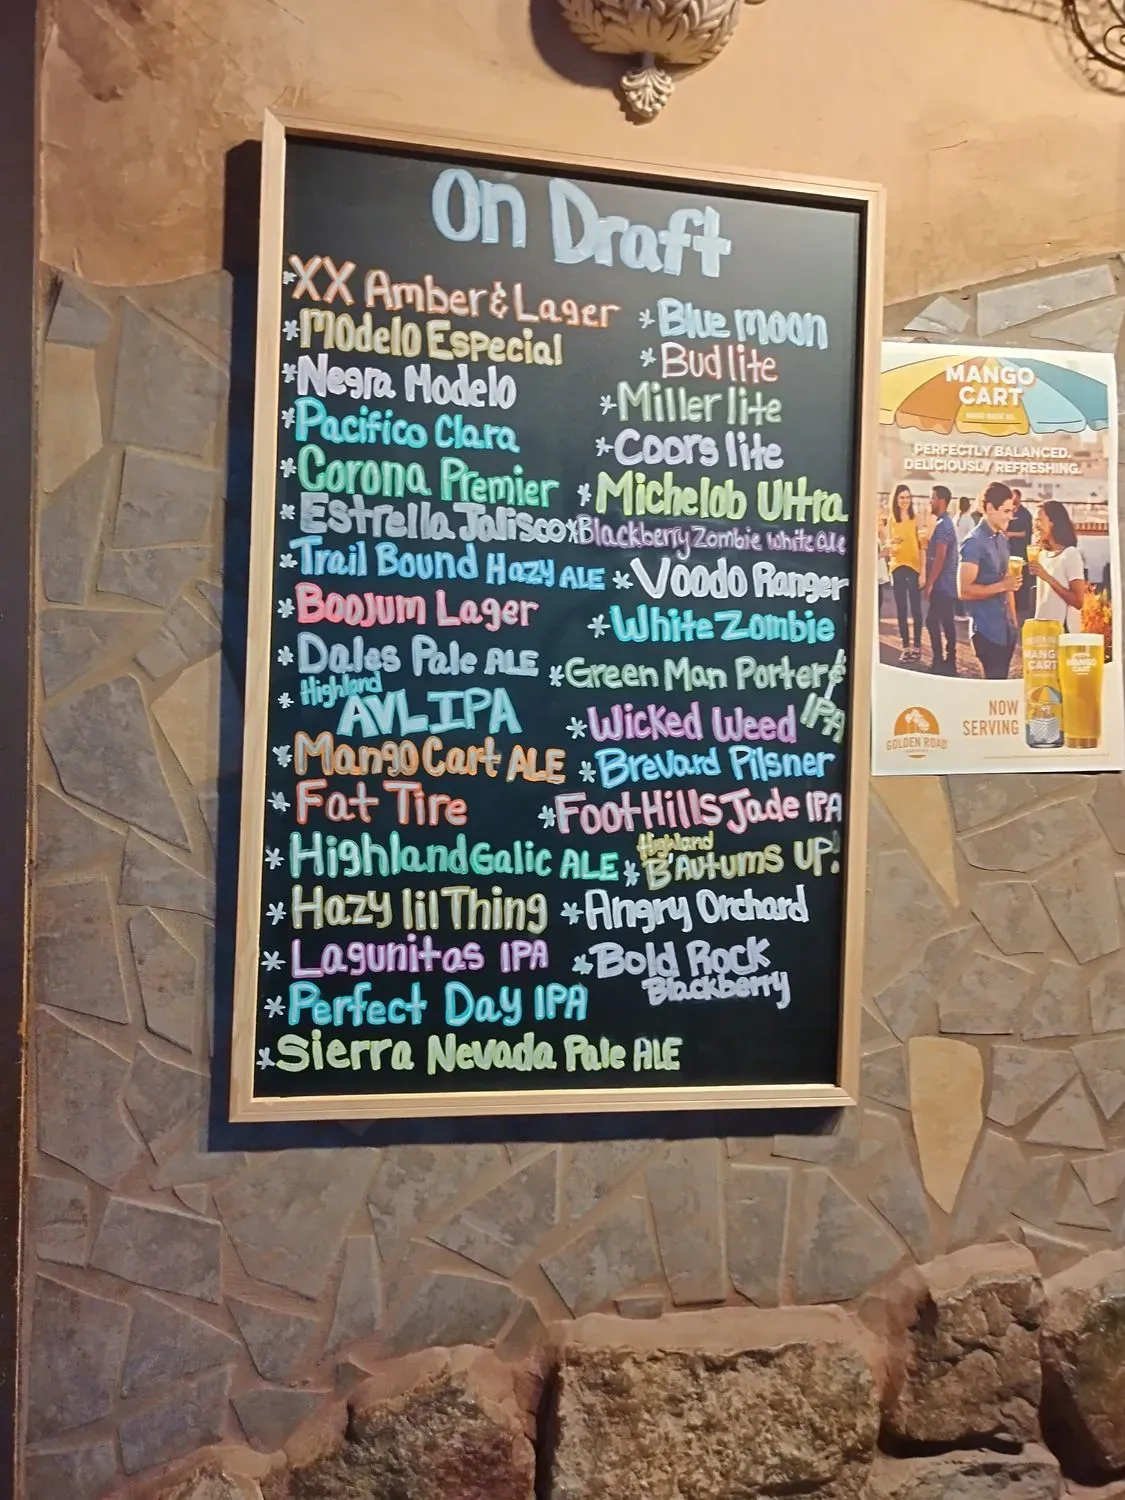 On Draft
*XX Amber & Lager
*Modelo Especial
*Negra Modelo
*Pacifico Clara
*Corona Premier
*Estrella Jalisco
*Trail Bound Hazy ALE
*Boojum Lager
*Dales Pale ALE
*Highland
AVL IPA
*Mango Cart ALE
*Fat Tire
*Highland Galic ALE
*Hazy lil Thing
*Lagunitas IPA
*Perfect Day IPA
*Sierra Nevada Pale ALE
*Blue moon
*Bud lite
*Miller lite
*Coors lite
*Michelob Ultra
*Blackberry Zombie white ale
*Voodo Ranger
*White Zombie
*Green Man Porter &
IPA
*Wicked Weed
*Brevard Pilsner
*FootHills Jade IPA
Highland
*B'Autums UP!
*Angry Orchard
*Bold Rock
Blackberry
MANGO
CART
PERFECTLY BALANCED.
DELICIOUSLY REFRESHING.
MANGO
CART
MANGO
CART
NOW
SERVING
GOLDEN ROAD